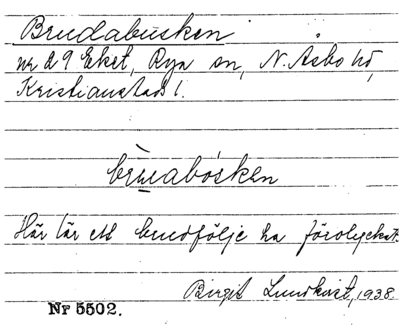 Brudabusken
nr 29 Eket, Rya sn, N. Åsbo hd,
Kristianstads l.
brùabósken
Här lär ett brudfölje ha förolyckat.
Birgit Lundkvist, 1938.
Nr 5502.